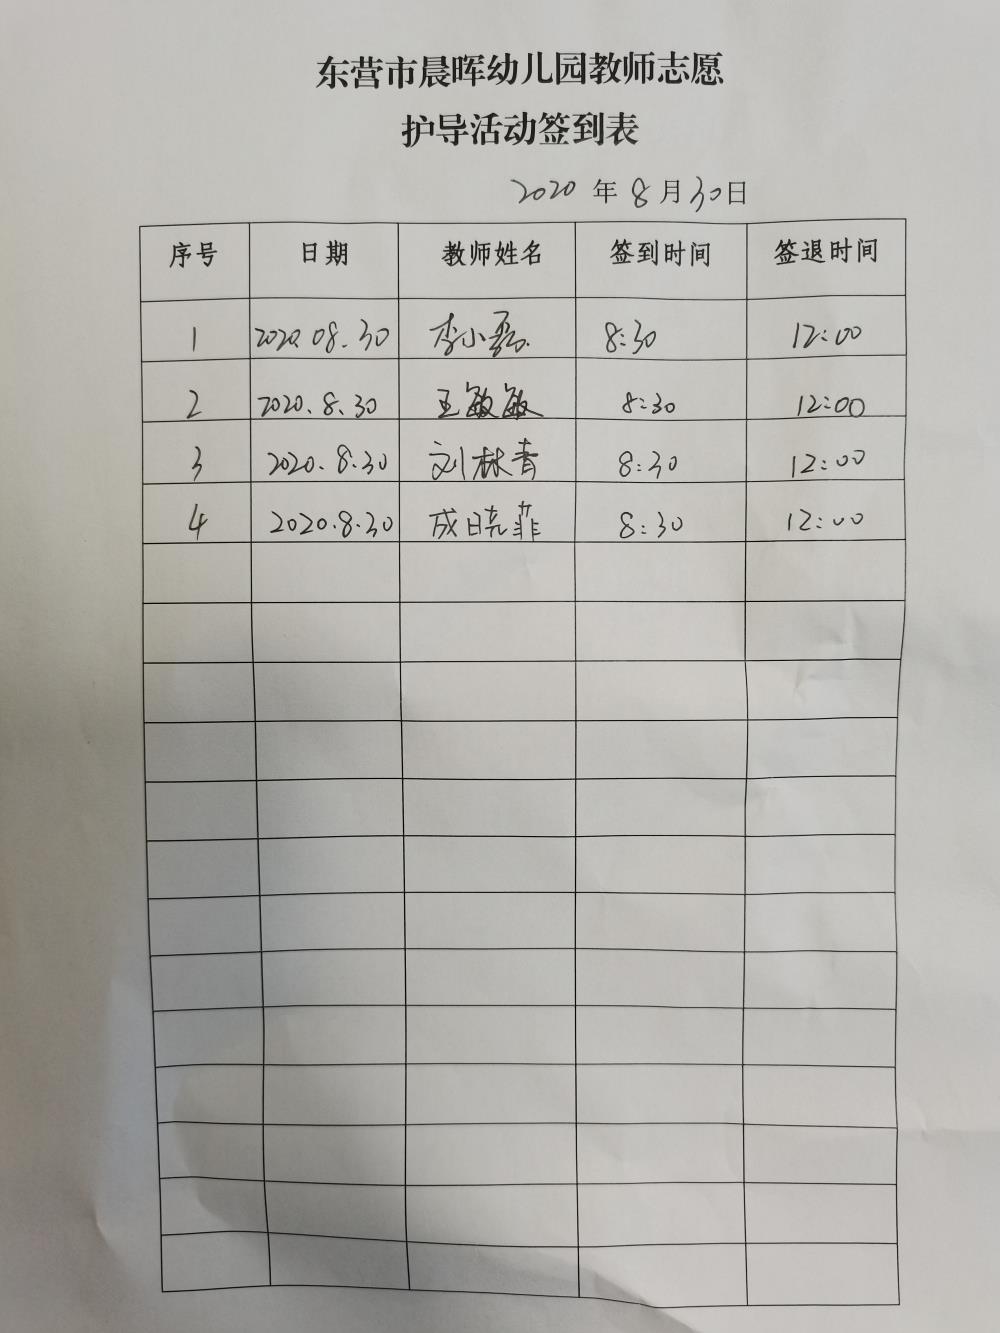 东营市晨晖幼儿园教师志愿
护导活动签到表
2020 年 8 月 30 日
序号 日期 教师姓名 签到时间 签退时间
1 2020.08.30 李小磊 8:30 12:00
2 2020.8.30 王敏敏 8:30 12:00
3 2020.8.30 刘林青 8:30 12:00
4 2020.8.30 成晓菲 8:30 12:00